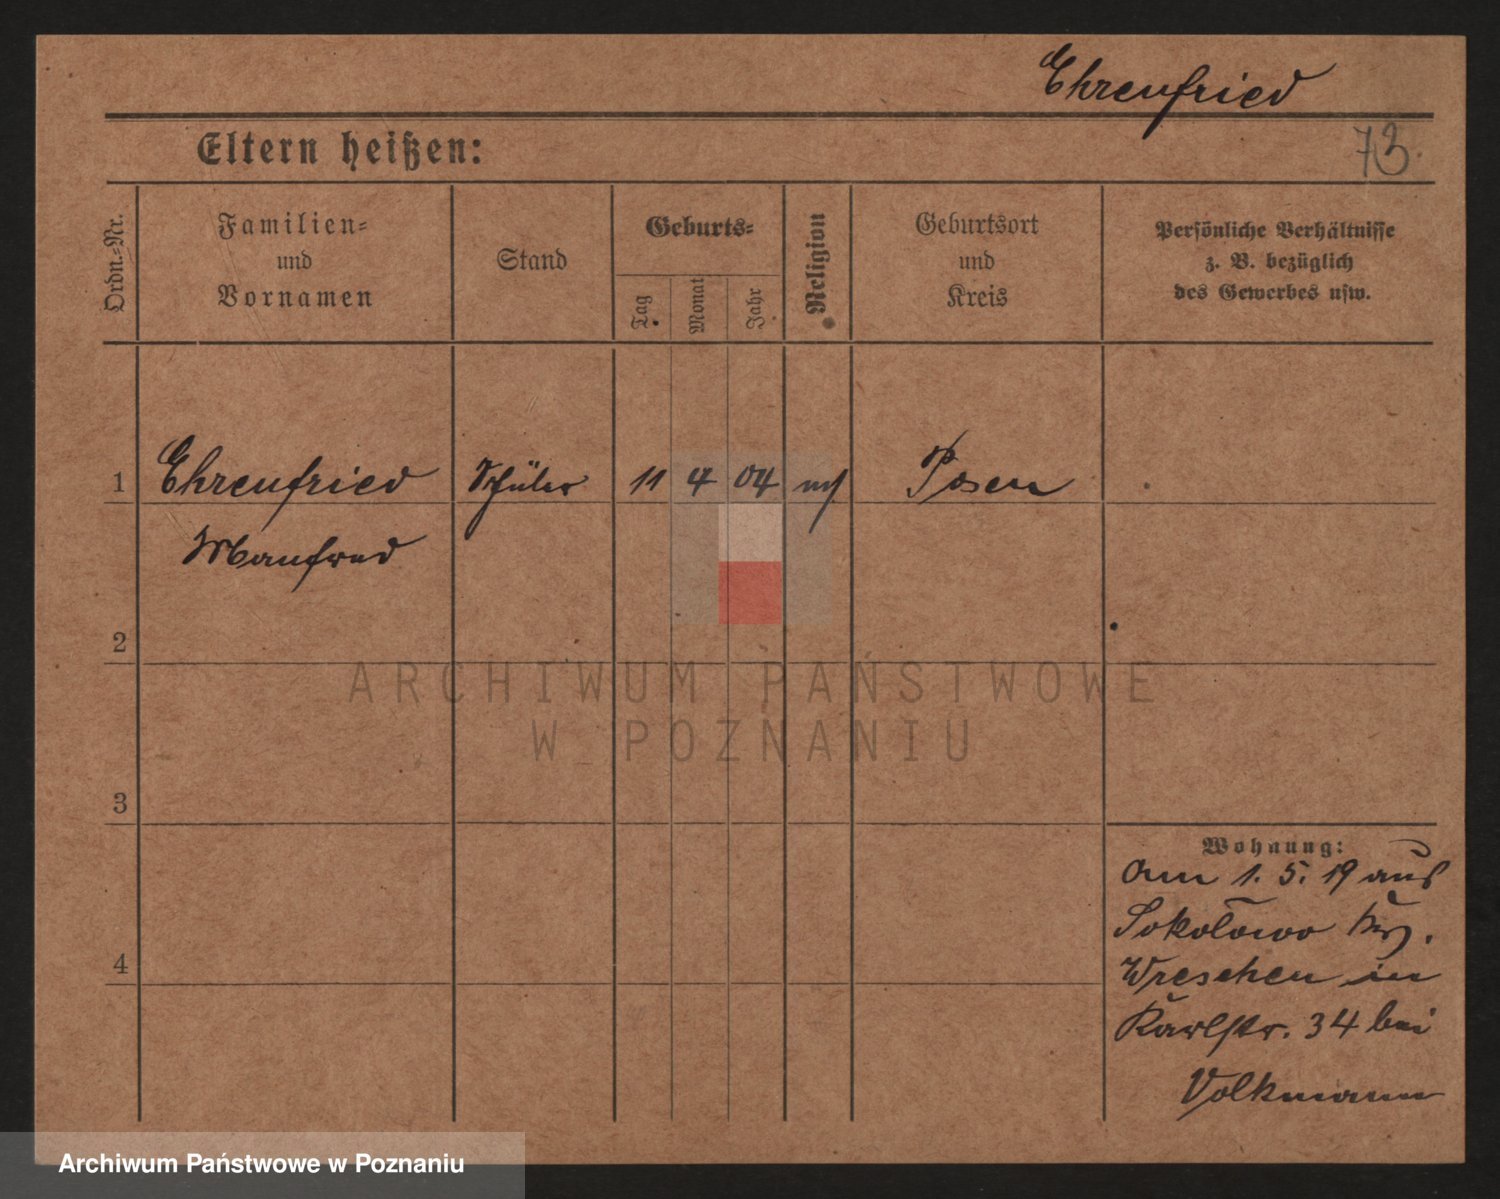 Ehrenfried
73.
Eltern heißen:
Ordn.-Nr.
Familien-
und
Vornamen
Stand
Geburts-
Tag
Monat
Jahr
Religion
Geburtsort
und
Kreis
Persönliche Verhältnisse
z. B. bezüglich
des Gewerbes usw.
1 Ehrenfried Schüler 11 4 04 Posen
Manfred
2
3
4
Wohnung:
Am 1. 5. 19 aus
Sokolowo
Wreschen in
Karlstr. 34 bei
Volkmann
ARCHIWUM PAŃSTWOWE
W POZNANIU
Archiwum Państwowe w Poznaniu